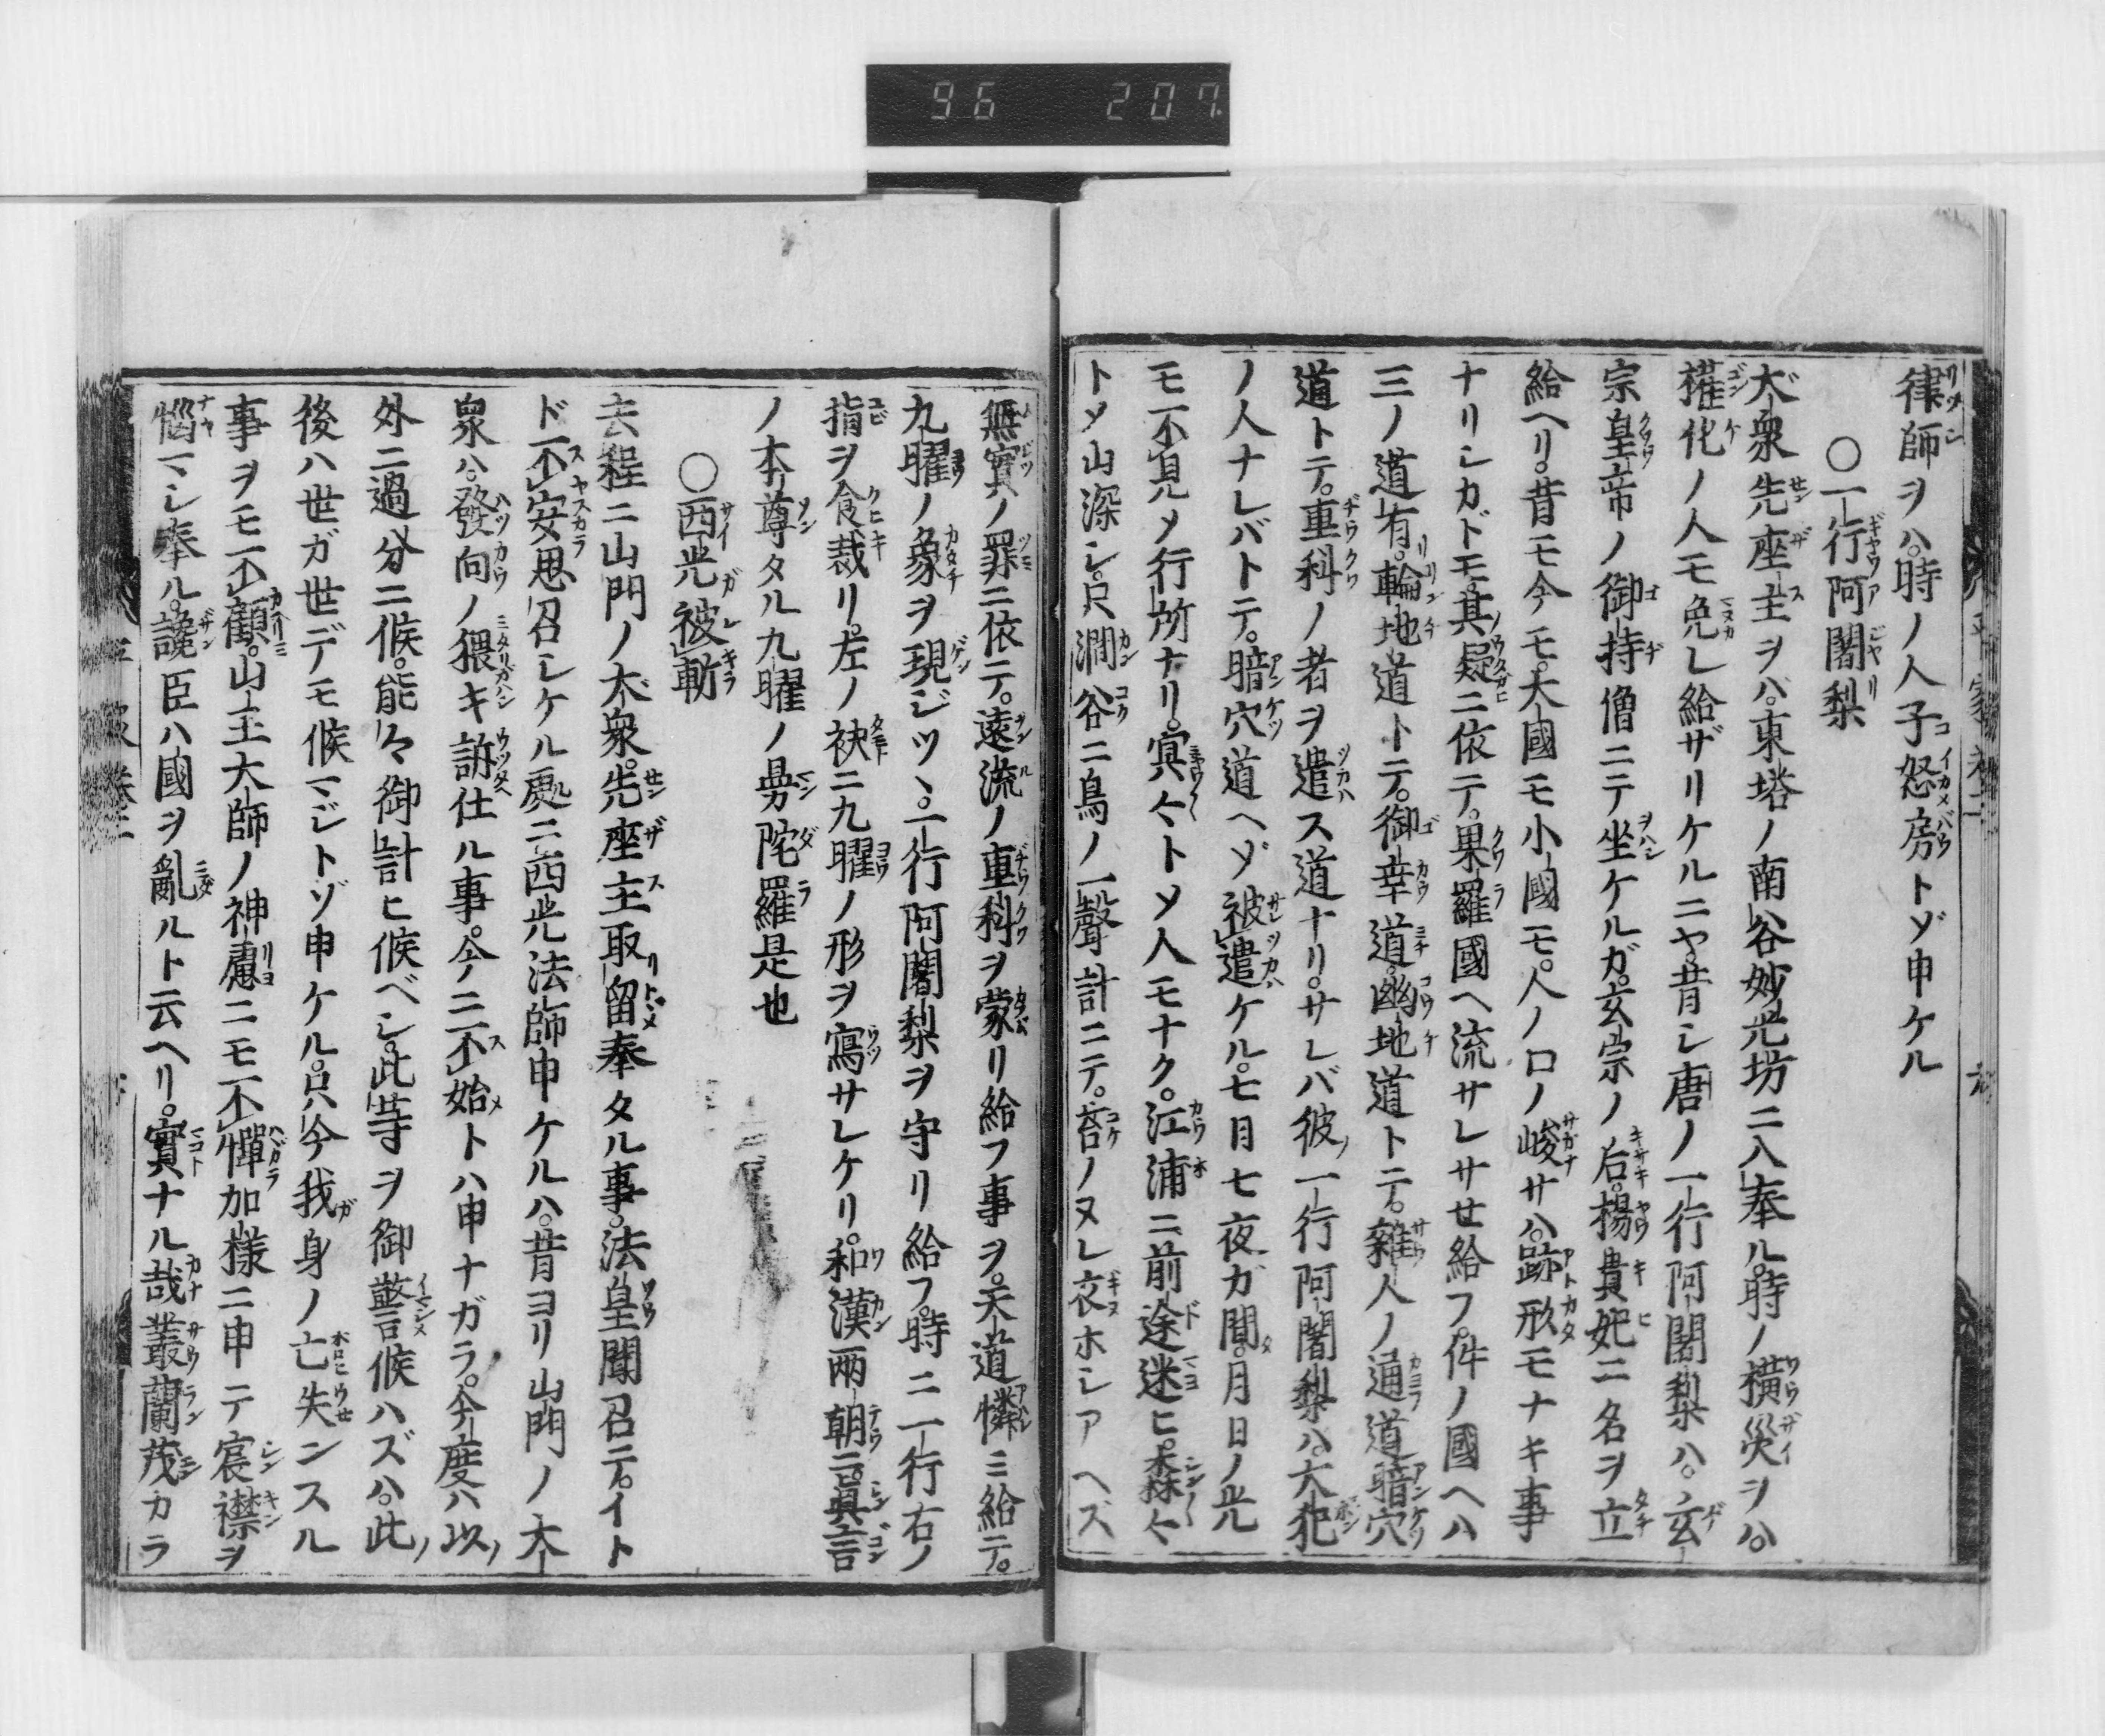 96 207
律師ヲハ。時ノ人子怒房トゾ申ケル
〇一行阿闍梨
大衆先座主ヲバ。東塔ノ南谷妙光坊ニ入奉ル。時ノ横災ヲハ。
權化ノ人モ免レ給ザリケルニヤ。昔シ唐ノ一行阿闍梨ハ。玄
宗皇帝ノ御持僧ニテ坐ケルガ。玄宗ノ后。楊貴妃ニ名ヲ立
給ヘリ。昔モ今モ。大國モ小國モ。人ノ口ノ峻サハ。跡形モナキ事
ナリシカドモ。其疑ニ依テ。果羅國ヘ流サレサセ給フ。件ノ國ヘハ
三ノ道有。輪地道トテ。御幸道。幽地道トテ。雜人ノ通道。暗穴
道トテ。重科ノ者ヲ遣ス道ナリ。サレバ彼一行阿闍梨ハ。大犯
ノ人ナレバトテ。暗穴道ヘゾ被遣ケル。七日七夜ガ間。月日ノ光
モ不見メ行所ナリ。冥々トメ人モナク。江浦ニ前途迷ヒ。森々
トメ山深シ。只澗谷ニ鳥ノ一聲計ニテ。苔ノヌレ衣ホシアヘズ
無實ノ罪ニ依テ。遠流ノ重科ヲ蒙リ給フ事ヲ。天道憐ミ給テ。
九曜ノ象ヲ現ジツヽ。一行阿闍梨ヲ守リ給フ。時ニ一行右ノ
指ヲ食裁リ。左ノ袂ニ九曜ノ形ヲ寫サレケリ。和漢兩朝ニ。眞言
ノ本尊タル九曜ノ曼陀羅是也
〇西光被斬
去程ニ山門ノ大衆。先座主取留奉タル事。法皇聞召テ。イト
ド不安思召レケル處ニ。西光法師申ケルハ。昔ヨリ山門ノ大
衆ハ。發向ノ猥キ訴仕ル事。今ニ不始トハ申ナガラ。今度ハ以
外ニ過分ニ候。能々御計ヒ候ベシ。此等ヲ御警候ハズハ。此
後ハ世ガ世デモ候マジトゾ申ケル。只今我身ノ亡失ンスル
事ヲモ不顧。山王大師ノ神慮ニモ不憚。加樣ニ申テ宸襟ヲ
惱マシ奉ル。讒臣ハ國ヲ亂ルト云ヘリ。實ナル哉。叢蘭茂カラ